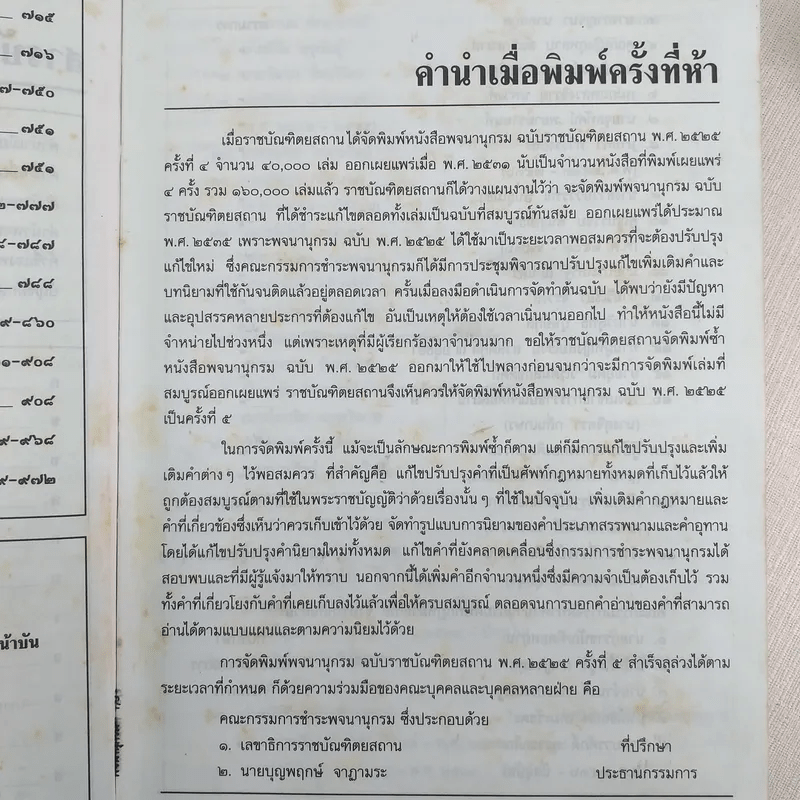 ๗๑๕
๗๑๖
๗-๗๕๐
๗๕๑
๗๕๑
๒-๗๗๗
๘-๗๘๗
๗๘๘
๙-๘๖๐
๑-๙๐๘
๙๐๘
๙-๙๖๘
๙-๙๗๒
น้าบัน
คำนำเมื่อพิมพ์ครั้งที่ห้า
เมื่อราชบัณฑิตยสถานได้จัดพิมพ์หนังสือพจนานุกรม ฉบับราชบัณฑิตยสถาน พ.ศ. ๒๕๒๕
ครั้งที่ ๔ จำนวน ๔๐,๐๐๐ เล่ม ออกเผยแพร่เมื่อ พ.ศ. ๒๕๓๑ นับเป็นจำนวนหนังสือที่พิมพ์เผยแพร่
๔ ครั้ง รวม ๑๖๐,๐๐๐ เล่มแล้ว ราชบัณฑิตยสถานก็ได้วางแผนงานไว้ว่า จะจัดพิมพ์พจนานุกรม ฉบับ
ราชบัณฑิตยสถาน ที่ได้ชำระแก้ไขตลอดทั้งเล่มเป็นฉบับที่สมบูรณ์ทันสมัย ออกเผยแพร่ได้ประมาณ
พ.ศ. ๒๕๓๕ เพราะพจนานุกรม ฉบับ พ.ศ. ๒๕๒๕ ได้ใช้มาเป็นระยะเวลาพอสมควรที่จะต้องปรับปรุง
แก้ไขใหม่ ซึ่งคณะกรรมการชำระพจนานุกรมก็ได้มีการประชุมพิจารณาปรับปรุงแก้ไขเพิ่มเติมคำและ
บทนิยามที่ใช้กันจนติดแล้วอยู่ตลอดเวลา ครั้นเมื่อลงมือดำเนินการจัดทำต้นฉบับ ได้พบว่ายังมีปัญหา
และอุปสรรคหลายประการที่ต้องแก้ไข อันเป็นเหตุให้ต้องใช้เวลาเนิ่นนานออกไป ทำให้หนังสือนี้ไม่มี
จำหน่ายไปช่วงหนึ่ง แต่เพราะเหตุที่มีผู้เรียกร้องมาจำนวนมาก ขอให้ราชบัณฑิตยสถานจัดพิมพ์ซ้ำ
หนังสือพจนานุกรม ฉบับ พ.ศ. ๒๕๒๕ ออกมาให้ใช้ไปพลางก่อนจนกว่าจะมีการจัดพิมพ์เล่มที่
สมบูรณ์ออกเผยแพร่ ราชบัณฑิตยสถานจึงเห็นควรให้จัดพิมพ์หนังสือพจนานุกรม ฉบับ พ.ศ. ๒๕๒๕
เป็นครั้งที่ ๕
ในการจัดพิมพ์ครั้งนี้ แม้จะเป็นลักษณะการพิมพ์ซ้ำก็ตาม แต่ก็มีการแก้ไขปรับปรุงและเพิ่ม
เติมคำต่าง ๆ ไว้พอสมควร ที่สำคัญคือ แก้ไขปรับปรุงคำที่เป็นศัพท์กฎหมายทั้งหมดที่เก็บไว้แล้วให้
ถูกต้องสมบูรณ์ตามที่ใช้ในพระราชบัญญัติว่าด้วยเรื่องนั้น ๆ ที่ใช้ในปัจจุบัน เพิ่มเติมคำกฎหมายและ
คำที่เกี่ยวข้องซึ่งเห็นว่าควรเก็บเข้าไว้ด้วย จัดทำรูปแบบการนิยามของคำประเภทสรรพนามและคำอุทาน
โดยได้แก้ไขปรับปรุงคำนิยามใหม่ทั้งหมด แก้ไขคำที่ยังคลาดเคลื่อนซึ่งกรรมการชำระพจนานุกรมได้
สอบพบและที่มีผู้รู้แจ้งมาให้ทราบ นอกจากนี้ได้เพิ่มคำอีกจำนวนหนึ่งซึ่งมีความจำเป็นต้องเก็บไว้ รวม
ทั้งคำที่เกี่ยวโยงกับคำที่เคยเก็บลงไว้แล้วเพื่อให้ครบสมบูรณ์ ตลอดจนการบอกคำอ่านของคำที่สามารถ
อ่านได้ตามแบบแผนและตามความนิยมไว้ด้วย
การจัดพิมพ์พจนานุกรม ฉบับราชบัณฑิตยสถาน พ.ศ. ๒๕๒๕ ครั้งที่ ๕ สำเร็จลุล่วงได้ตาม
ระยะเวลาที่กำหนด ก็ด้วยความร่วมมือของคณะบุคคลและบุคคลหลายฝ่าย คือ
คณะกรรมการชำระพจนานุกรม ซึ่งประกอบด้วย
๑. เลขาธิการราชบัณฑิตยสถาน ที่ปรึกษา
๒. นายบุญพฤกษ์ จาฏามระ ประธานกรรมการ